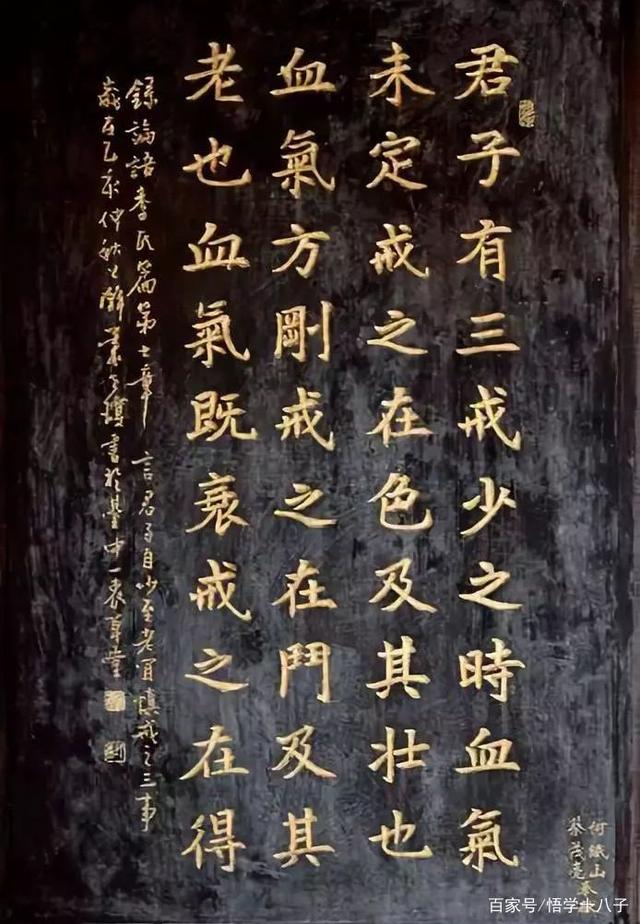 君子有三戒少之時血氣
未定戒之在色及其壯也
血氣方剛戒之在鬥及其
老也血氣既衰戒之在得
錄論語季氏篇第七章 言君子自少至老宜慎戒之三事
歲在乙亥仲秋上澣書於臺中一衷草堂
蔡茂亮
百家号/悟学十八子